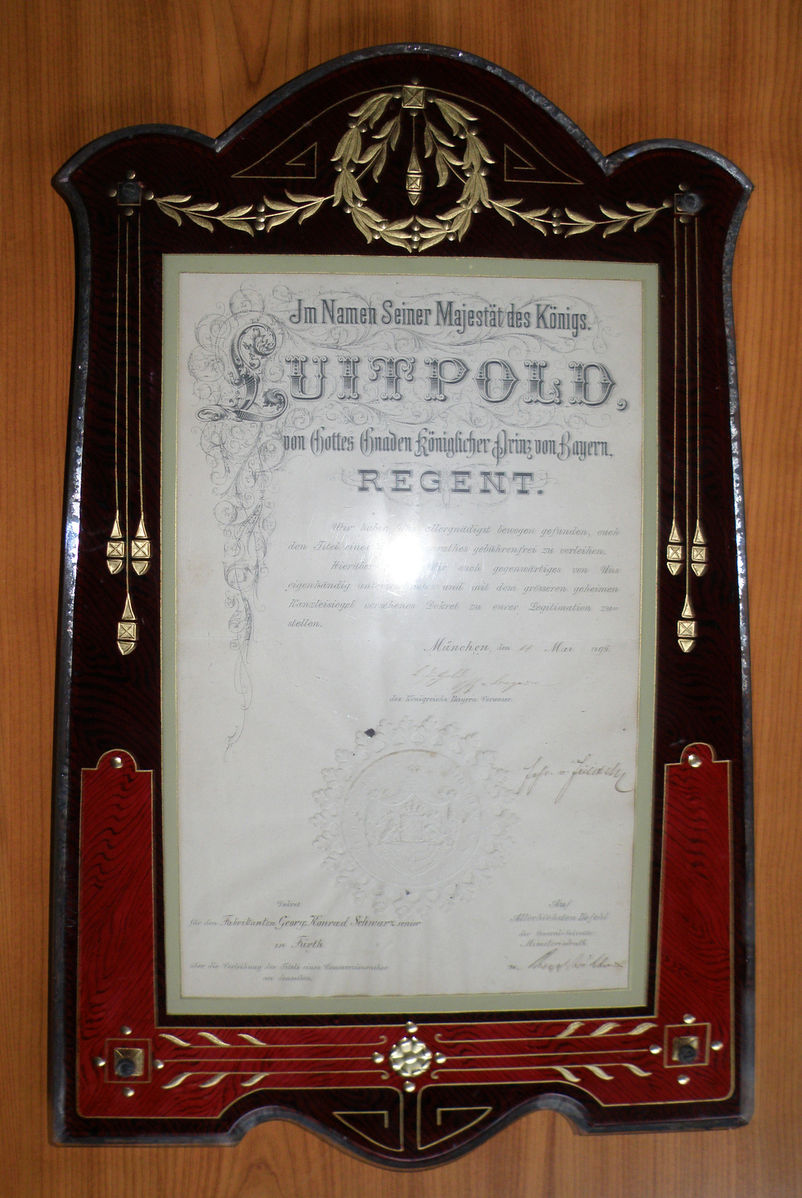 Im Namen Seiner Majestät des Königs.
LUITPOLD,
von Gottes Gnaden Königlicher Prinz von Bayern,
REGENT.
Wir haben allergnädigst bewogen gefunden, euch
den Titel eines gebührenfrei zu verleihen.
euch gegenwärtiges von Uns
eigenhändig und mit dem grösseren geheimen
Kanzleisiegel versehenes Dekret zu eurer Legitimation zu-
stellen.
München, den Mai
des Königreichs Bayern Verweser.
Dekret
für den Fabrikanten Georg Konrad Schwarz senior
in Fürth
über die Verleihung des Titels eines Commerzienrathes
Auf
Allerhöchsten Befehl
der
Ministerialrath